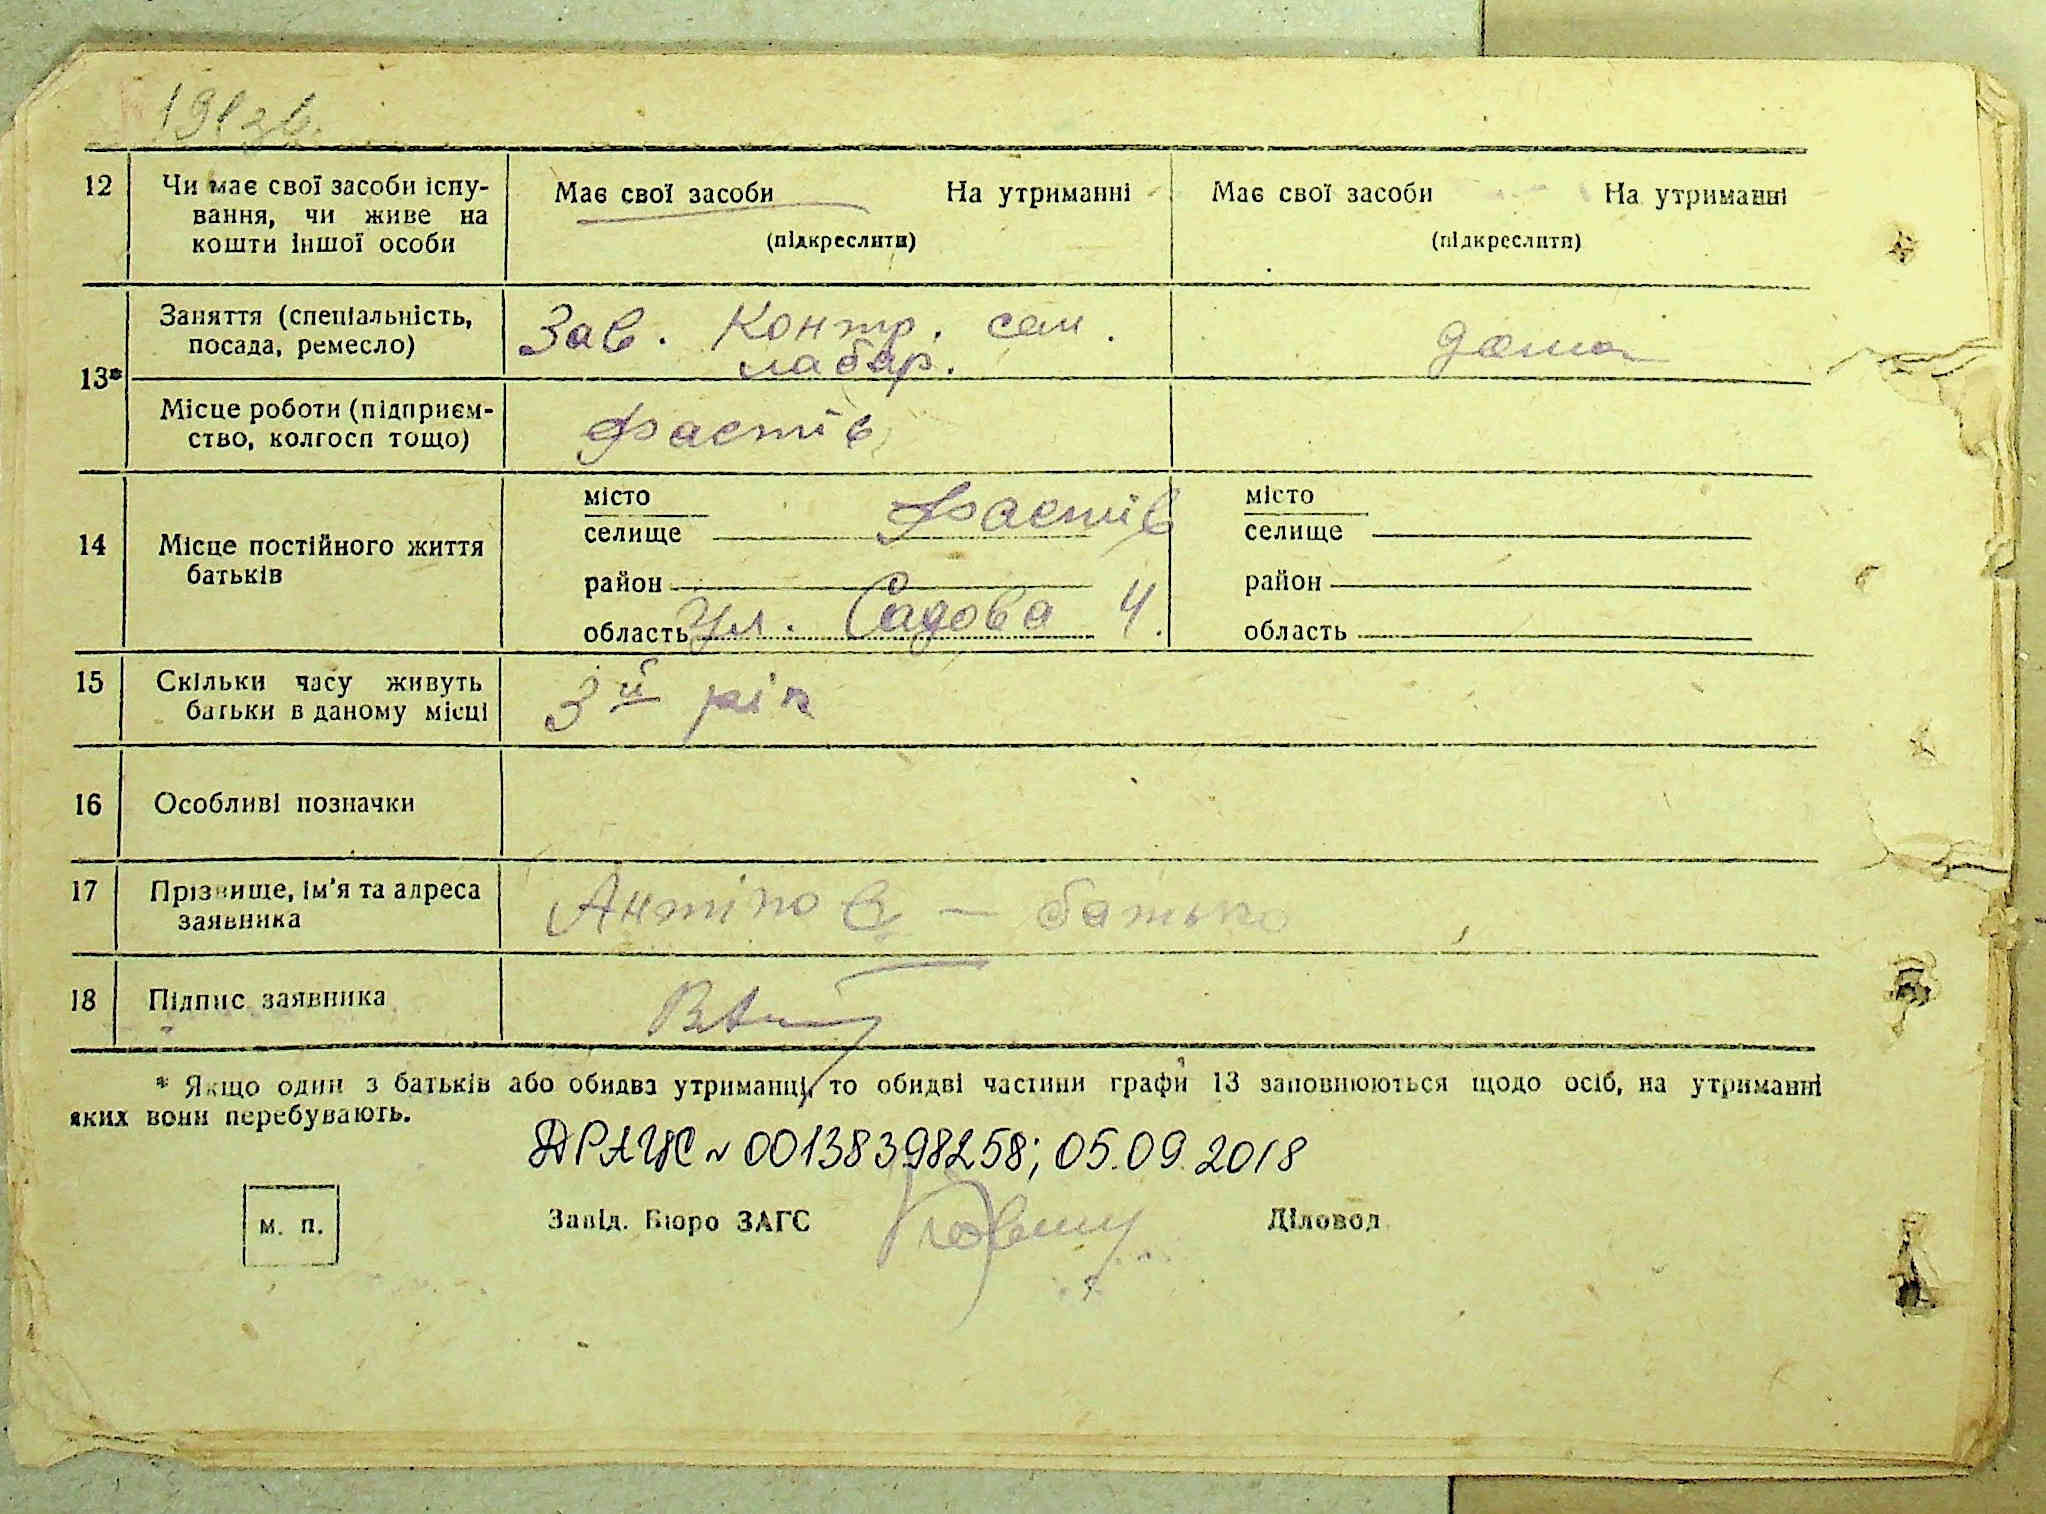 191зв.
12 Чи має свої засоби існу-
вання, чи живе на
кошти іншої особи
Має свої засоби На утриманні
(підкреслити)
Має свої засоби На утриманні
(підкреслити)
13*
Заняття (спеціальність,
посада, ремесло)
Зав. Контр. сем.
лабар.
дома
Місце роботи (підприєм-
ство, колгосп тощо)
Фастів
14 Місце постійного життя
батьків
місто
селище Фастів
район
область Ул. Садова 4.
місто
селище
район
область
15 Скільки часу живуть
батьки в даному місці
3й рік
16 Особливі позначки
17 Прізвище, ім'я та адреса
заявника
Антіпов — батько
18 Підпис заявника
* Якщо один з батьків або обидва утриманці, то обидві частини графи 13 заповнюються щодо осіб, на утриманні
яких вони перебувають.
ДРАЦС № 00138398258; 05.09.2018
м. п.
Завід. Бюро ЗАГС
Діловод